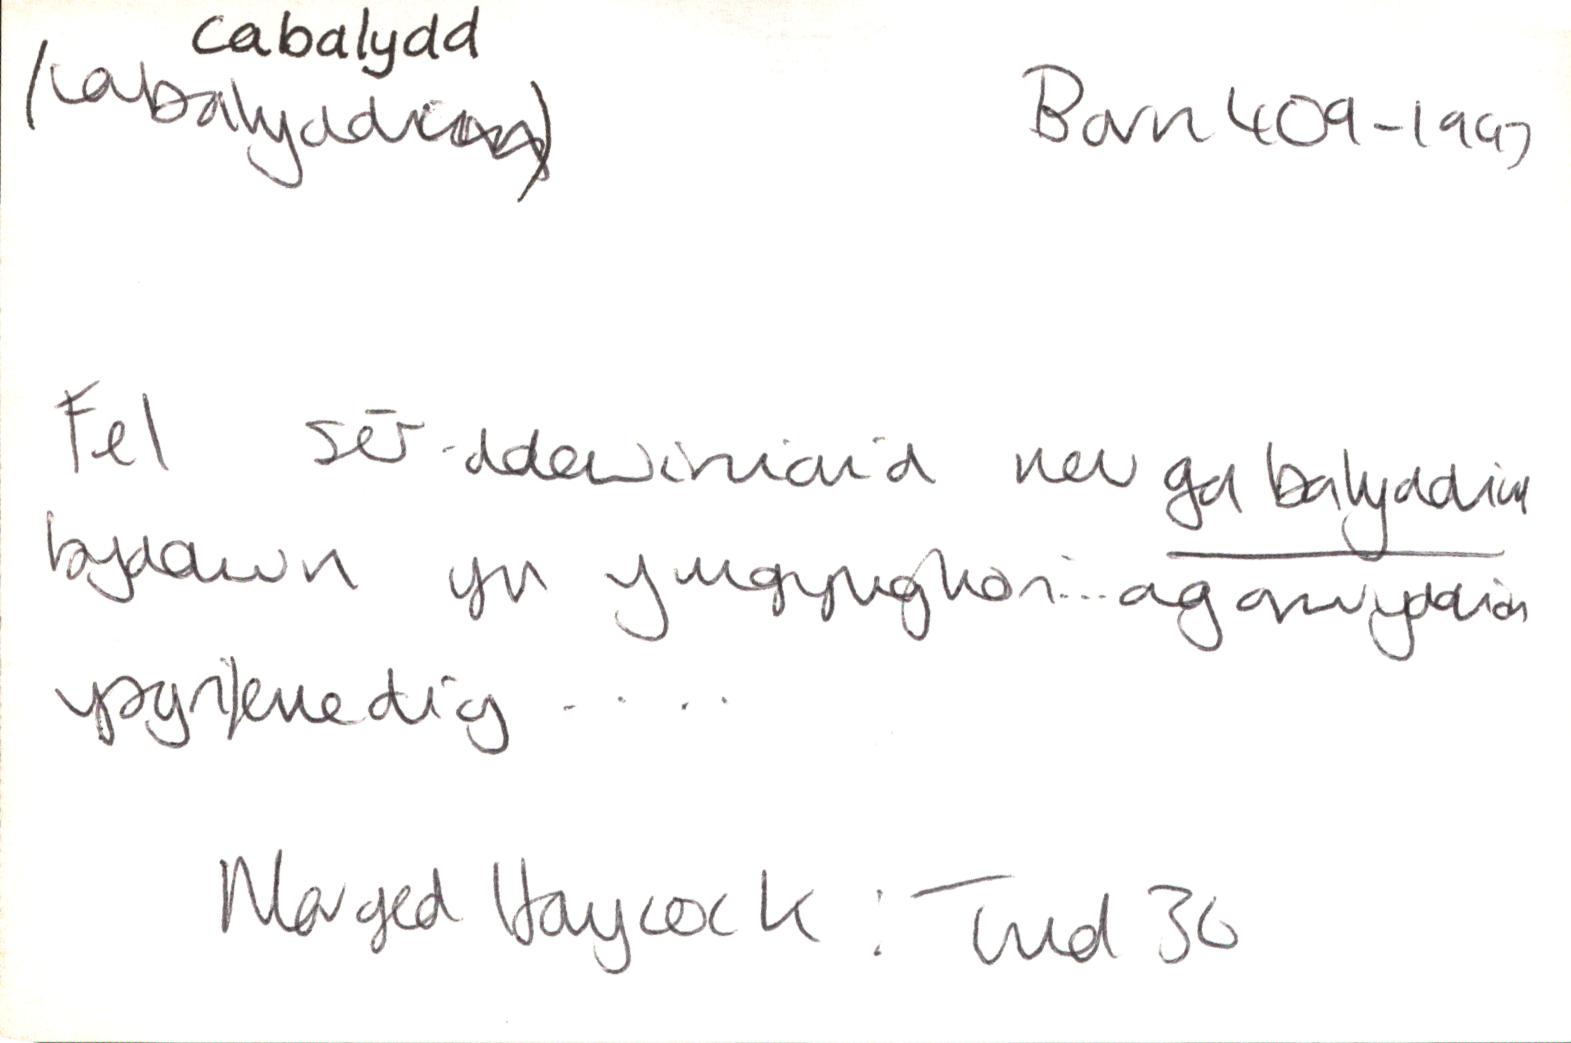 cabalydd
(cabalyddion)
Barn 409-1997
Fel sêr-ddewiniaid neu gabalyddion
byddwn yn ymgynghori... ag arwyddion
ysgrifenedig .....
Marged Haycock : Tud 36